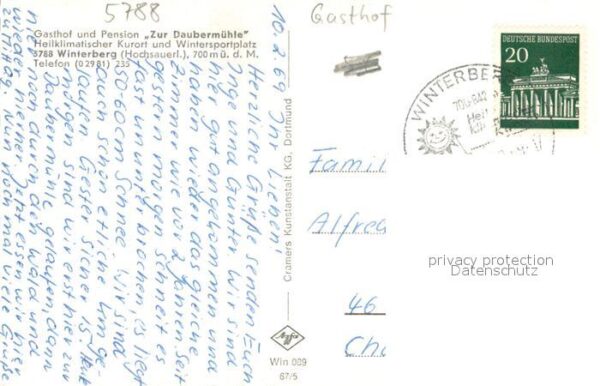 5788
Gasthof und Pension „Zur Daubermühle"
Heilklimatischer Kurort und Wintersportplatz
5788 Winterberg (Hochsauerl.), 700 m ü. d. M.
Telefon (02981) 235
Gasthof
DEUTSCHE BUNDESPOST
20
WINTERBER
700-842
10.2.69 Ihr Lieben!
Herzliche Grüße senden Euch
Inge und Günter. Wir sind
hier gut angekommen und
wieder das gleiche
Zimmer wie vor 2 Jahren. Seit
gestern morgen schneit es
fast ununterbrochen, es liegt
50-60 cm Schnee. Wir sind
auch schon etliche km ge-
laufen. Gestern sicher 15. Heute
morgen sind wir erst hier zur
Daubermühle gelaufen, dann
noch durch den Wald und
wieder hier. Jetzt essen wir hier
zu Mittag. Nun noch mal viele Grüße
Cramers Kunstanstalt KG, Dortmund
Agfa
Win 089
67/5
Famil
Alfre
46
privacy protection
Datenschutz